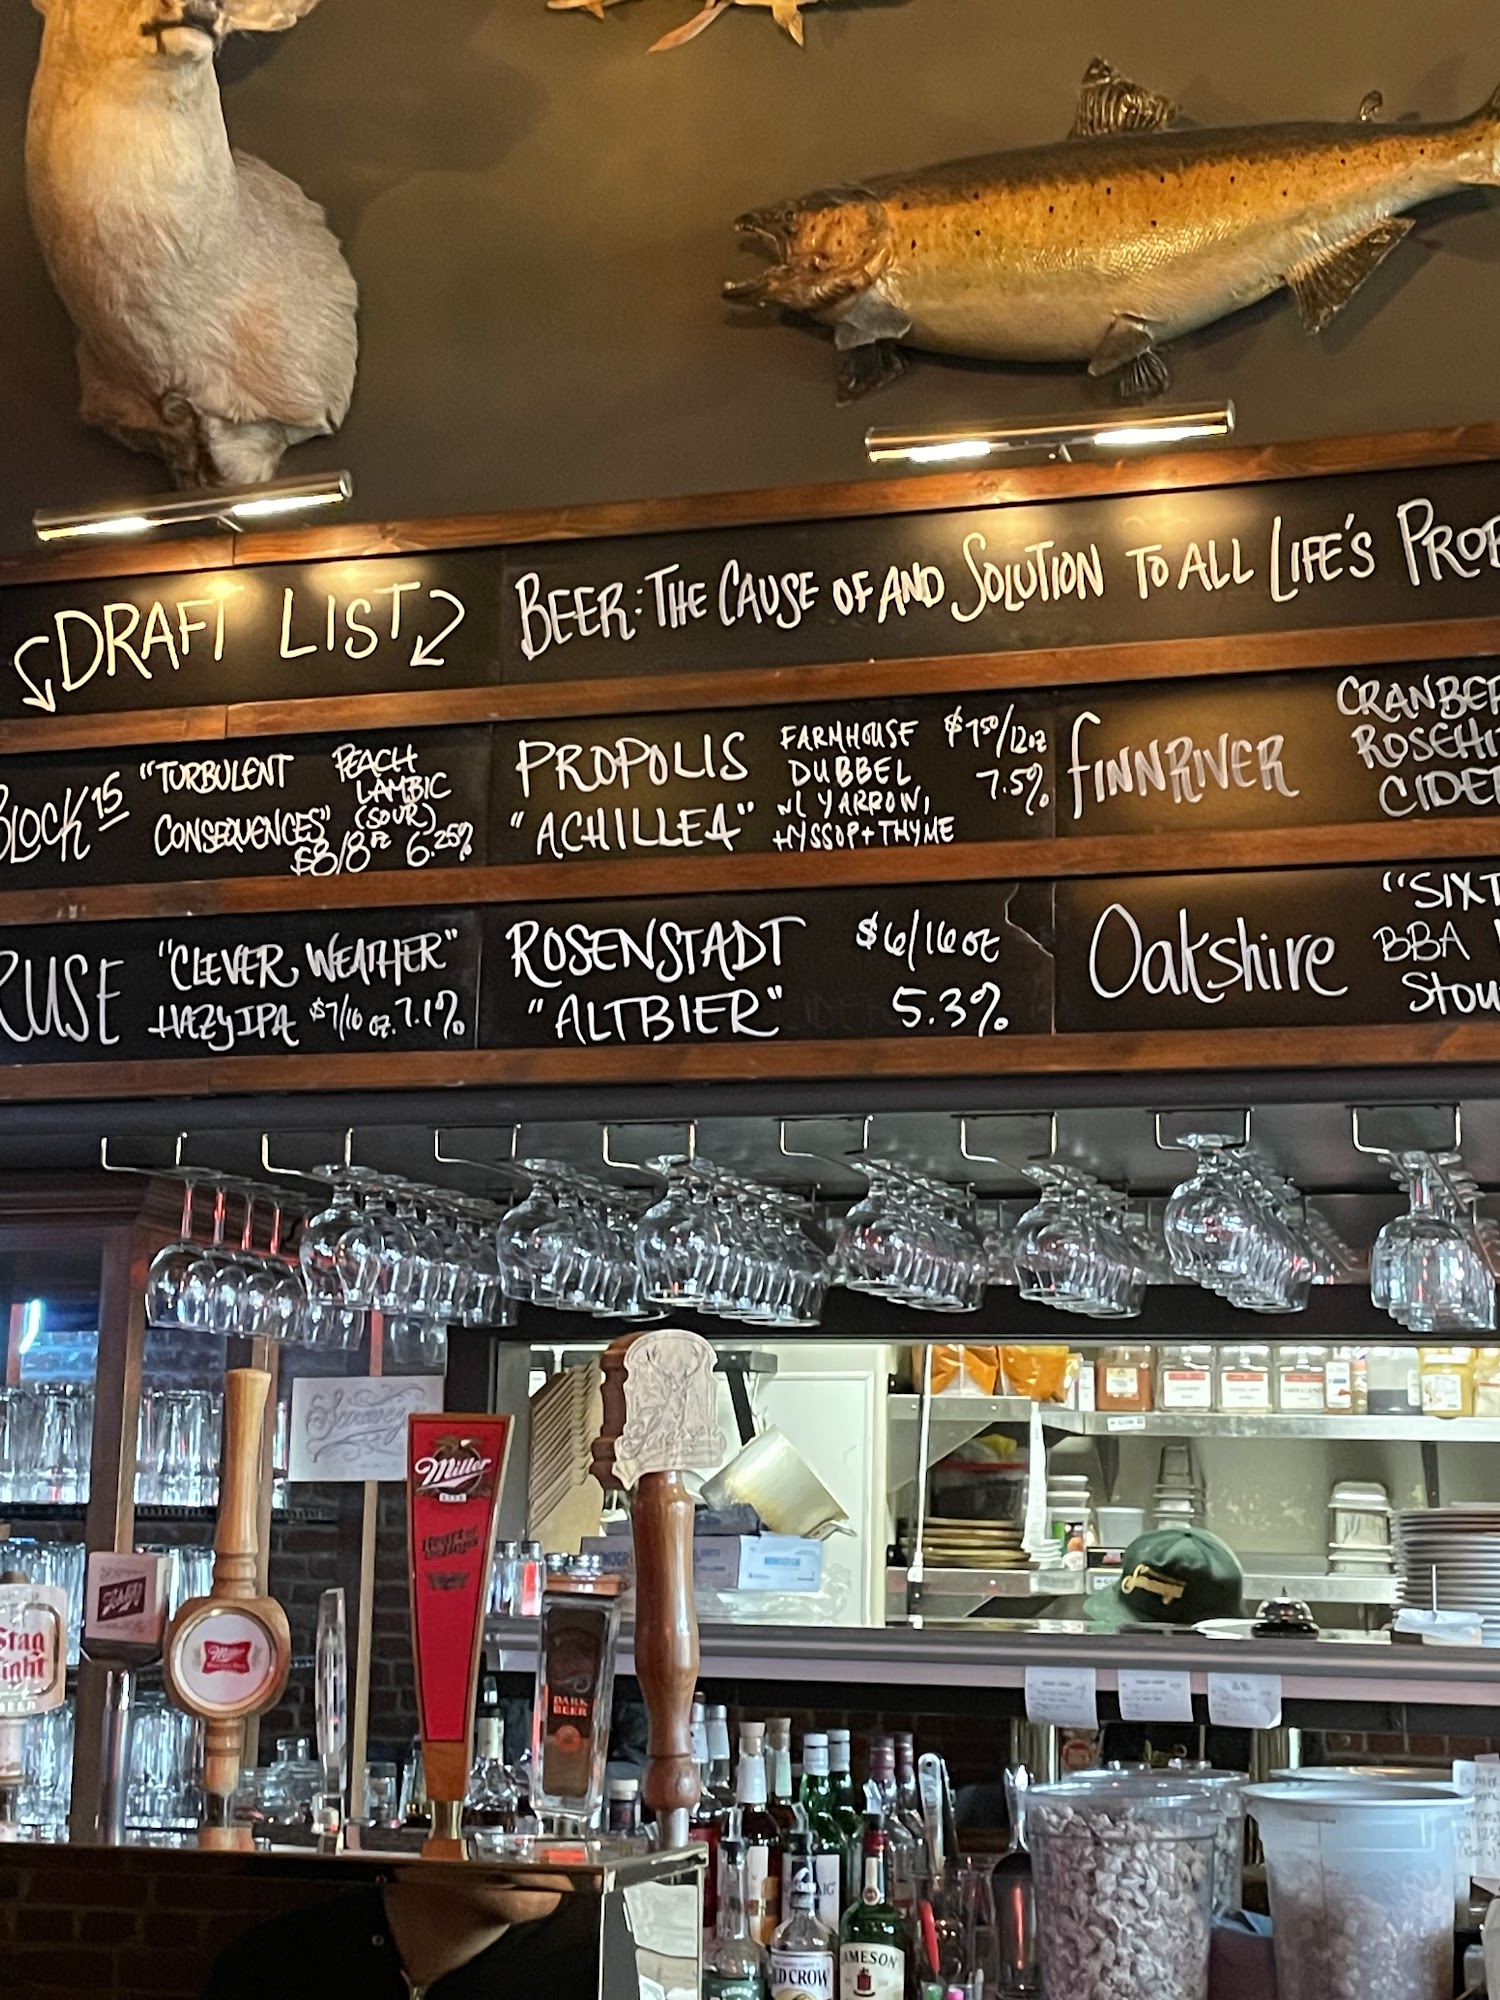 DRAFT LIST
BEER: THE CAUSE OF AND SOLUTION TO ALL LIFE'S PROB
BLOCK 15
"TURBULENT
CONSEQUENCES"
PEACH
LAMBIC
(SOUR)
$8/8oz 6.25%
PROPOLIS
"ACHILLEA"
FARMHOUSE
DUBBEL
w/ YARROW,
HYSSOP + THYME
$7.50/12oz
7.5%
FINNRIVER
CRANBER
ROSEHI
CIDER
RUSE
"CLEVER WEATHER"
HAZY IPA $7/16 oz. 7.1%
ROSENSTADT
"ALTBIER"
$6/16oz
5.3%
Oakshire
"SIXT
BBA
Stou
Miller
Stag
ight
BEER
DARK
BEER
JAMESON
LD CROW